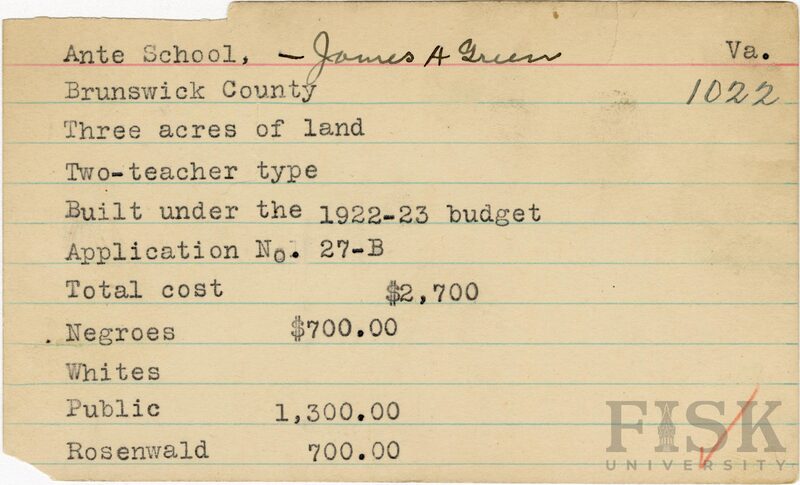 Ante School, — James A Green Va.
Brunswick County 1022
Three acres of land
Two-teacher type
Built under the 1922-23 budget
Application No. 27-B
Total cost $2,700
Negroes $700.00
Whites
Public 1,300.00
Rosenwald 700.00
FISK
UNIVERSITY